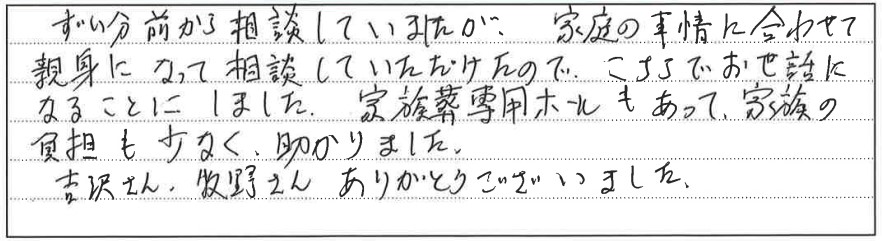 ずい分前から相談していましたが、家庭の事情に合わせて
親身になって相談していただけたので、こちらでお世話に
なることにしました。家族葬専用ホールもあって、家族の
負担も少なく、助かりました。
吉沢さん、牧野さん ありがとうございました。